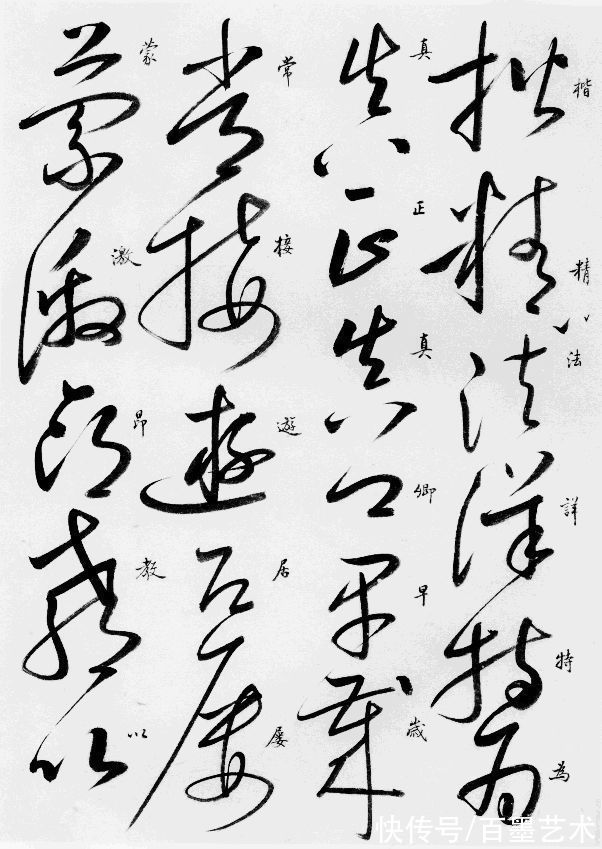 楷精法詳特為
真正真卿早歲
常接遊居屡
蒙激昂教以
快传号/百墨艺术